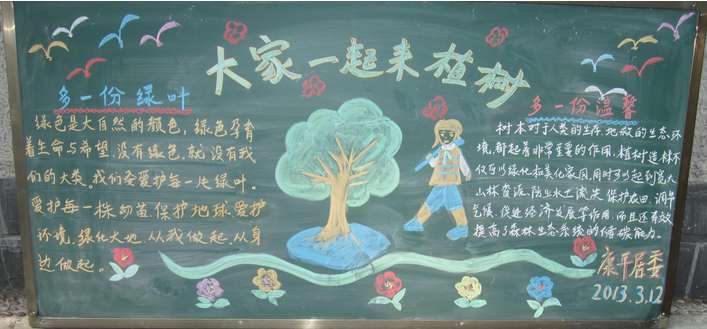 大家一起来植树
多一份绿叶
绿色是大自然的颜色，绿色孕育
着生命与希望，没有绿色，就没有我
们的大类。我们要爱护每一片绿叶。
爱护每一株幼苗，保护地球，爱护
环境，绿化大地，从我做起，从身
边做起。
多一份温馨
树木对于人类的生存，地球的生态环
境，都起着非常重要的作用，植树造林不
仅可以绿化和美化家园，同时可以起到
山林 防止水土流失，保护农田，调节
气候，促进经济发展等作用，而且还有效
提高了森林生态系统的储碳能力。
康平居委
2013.3.12